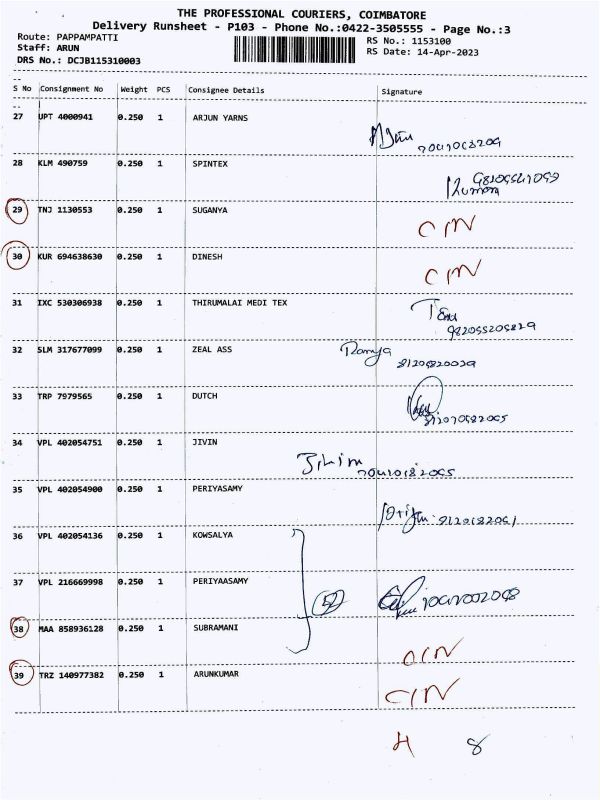 THE PROFESSIONAL COURIERS, COIMBATORE
Delivery Runsheet - P103 - Phone No.:0422-3505555 - Page No.:3
Route: PAPPAMPATTI RS No.: 1153100
Staff: ARUN RS Date: 14-Apr-2023
DRS No.: DCJB115310003
S No Consignment No Weight PCS Consignee Details Signature
27 UPT 4000941 0.250 1 ARJUN YARNS
28 KLM 490759 0.250 1 SPINTEX
29 TNJ 1130553 0.250 1 SUGANYA CIN
30 KUR 694638630 0.250 1 DINESH CIN
31 IXC 530306938 0.250 1 THIRUMALAI MEDI TEX
32 SLM 317677099 0.250 1 ZEAL ASS Ramya
33 TRP 7979565 0.250 1 DUTCH
34 VPL 402054751 0.250 1 JIVIN
35 VPL 402054900 0.250 1 PERIYASAMY
36 VPL 402054136 0.250 1 KOWSALYA
37 VPL 216669998 0.250 1 PERIYAASAMY
38 MAA 858936128 0.250 1 SUBRAMANI CIN
39 TRZ 140977382 0.250 1 ARUNKUMAR CIN
8